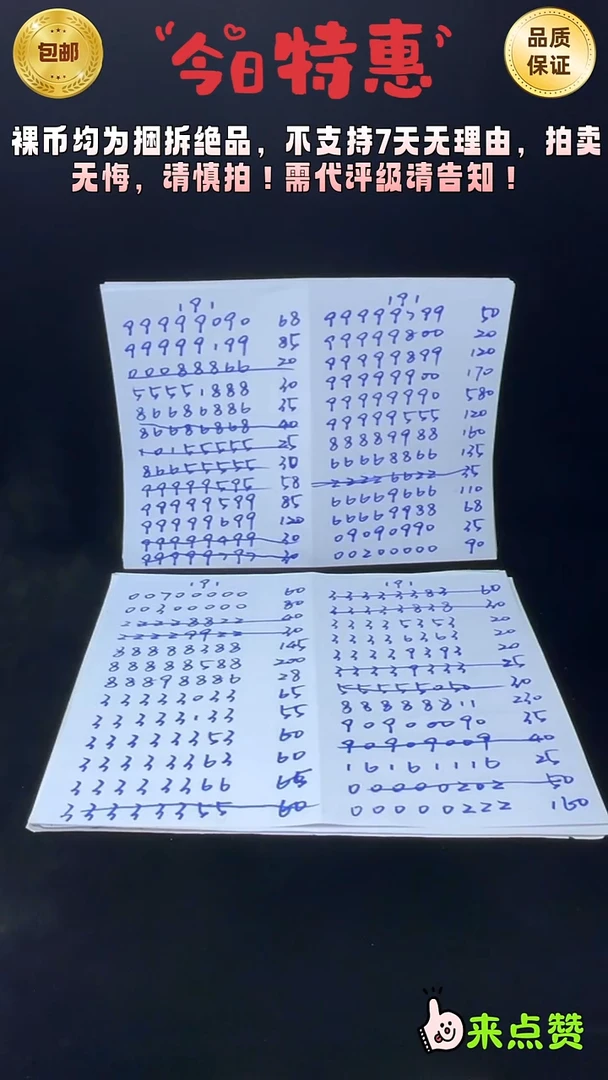 包邮
今日特惠
品质
保证
裸币均为捆拆绝品，不支持7天无理由，拍卖
无悔，请慎拍！需代评级请告知！
191
99999090 68
99999199 85
00088866 20
55551888 30
86686886 35
86686868 40
10155555 25
86655555 30
99999595 58
99999599 85
99999699 120
99999499 30
99999797 30
191
99999799 50
99999800 20
99999899 120
99999900 170
99999990 580
99999555 120
88889988 160
66668866 135
22226622 35
66669666 110
66669938 68
09090990 35
00200000 90
191
00700000 60
00300000 80
22228822 40
22229922 30
88888388 145
88888588 200
88898886 28
33333033 65
33333133 55
33333353 60
33333363 60
33333366 65
33333355 60
191
33333383 60
33333838 30
33335353 20
33336363 20
33339393 20
33339333 25
55555050 30
88888811 230
90900090 35
90909009 40
16161116 25
00000202 50
00000222 160
来点赞